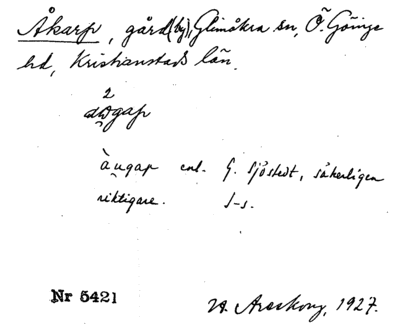 Åkarp, gård (by), Glimåkra sn, Ö. Göinge
hd, Kristianstads län.
2
àu̯gap enl. G. Sjöstedt, säkerligen
riktigare. S-s.
Nr 5421
W. Areskoug, 1927.